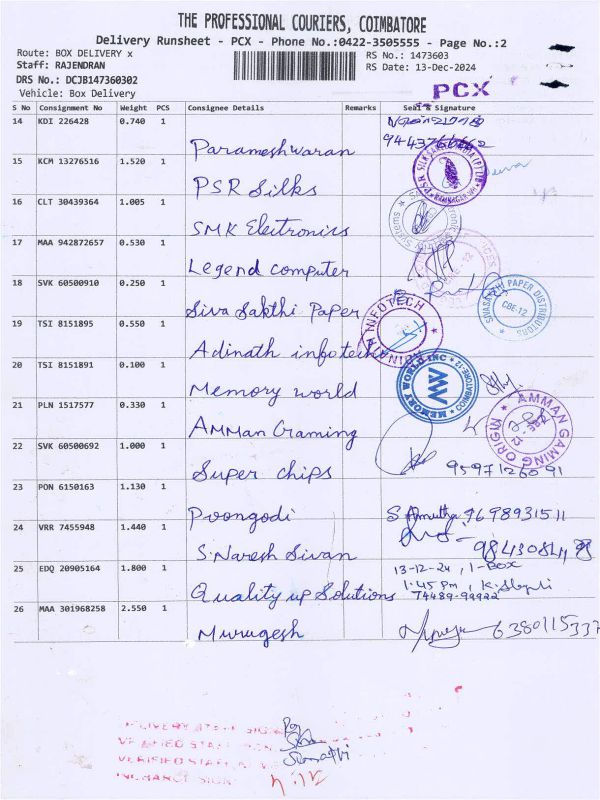 THE PROFESSIONAL COURIERS, COIMBATORE
Delivery Runsheet - PCX - Phone No.:0422-3505555 - Page No.:2
Route: BOX DELIVERY x
RS No.: 1473603
Staff: RAJENDRAN
RS Date: 13-Dec-2024
DRS No.: DCJB147360302
PCX
Vehicle: Box Delivery
S No Consignment No Weight PCS Consignee Details Remarks Seal & Signature
14 KDI 226428 0.740 1
Parameshwaran
15 KCM 13276516 1.520 1
PSR Silks
16 CLT 30439364 1.005 1
SMK Electronics
17 MAA 942872657 0.530 1
Legend computer
18 SVK 60500910 0.250 1
Siva Sakthi Paper
SIVASAKTHI PAPER DISTRIBUTORS
CBE-12
19 TSI 8151895 0.550 1
Adinath infotech
INFOTECH
20 TSI 8151891 0.100 1
Memory world
MEMORY WORLD INC
COIMBATORE-12
21 PLN 1517577 0.330 1
AMMan Graming
AMMAN GAMING
22 SVK 60500692 1.000 1
Super chips
95971260 91
23 PON 6150163 1.130 1
Poongodi
9698931511
24 VRR 7455948 1.440 1
S.Naresh Sivan
25 EDQ 20905164 1.800 1
Quality up Solutions
13-12-24, 1-Box
1:45 Pm,
74489-99922
26 MAA 301968258 2.550 1
Murugesh
6380115337